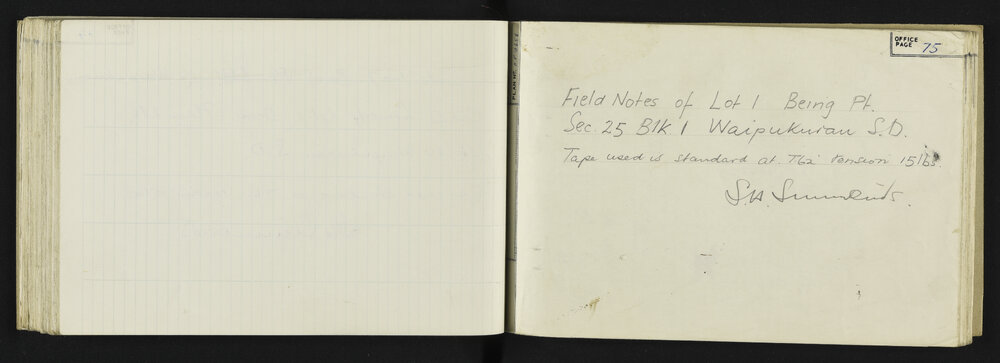 OFFICE
PAGE 75
Field Notes of Lot 1 Being Pt.
Sec. 25 Blk 1 Waipukurau S.D.
Tape used is standard at T62° tension 15lbs.
S.H.
PLAN NO.